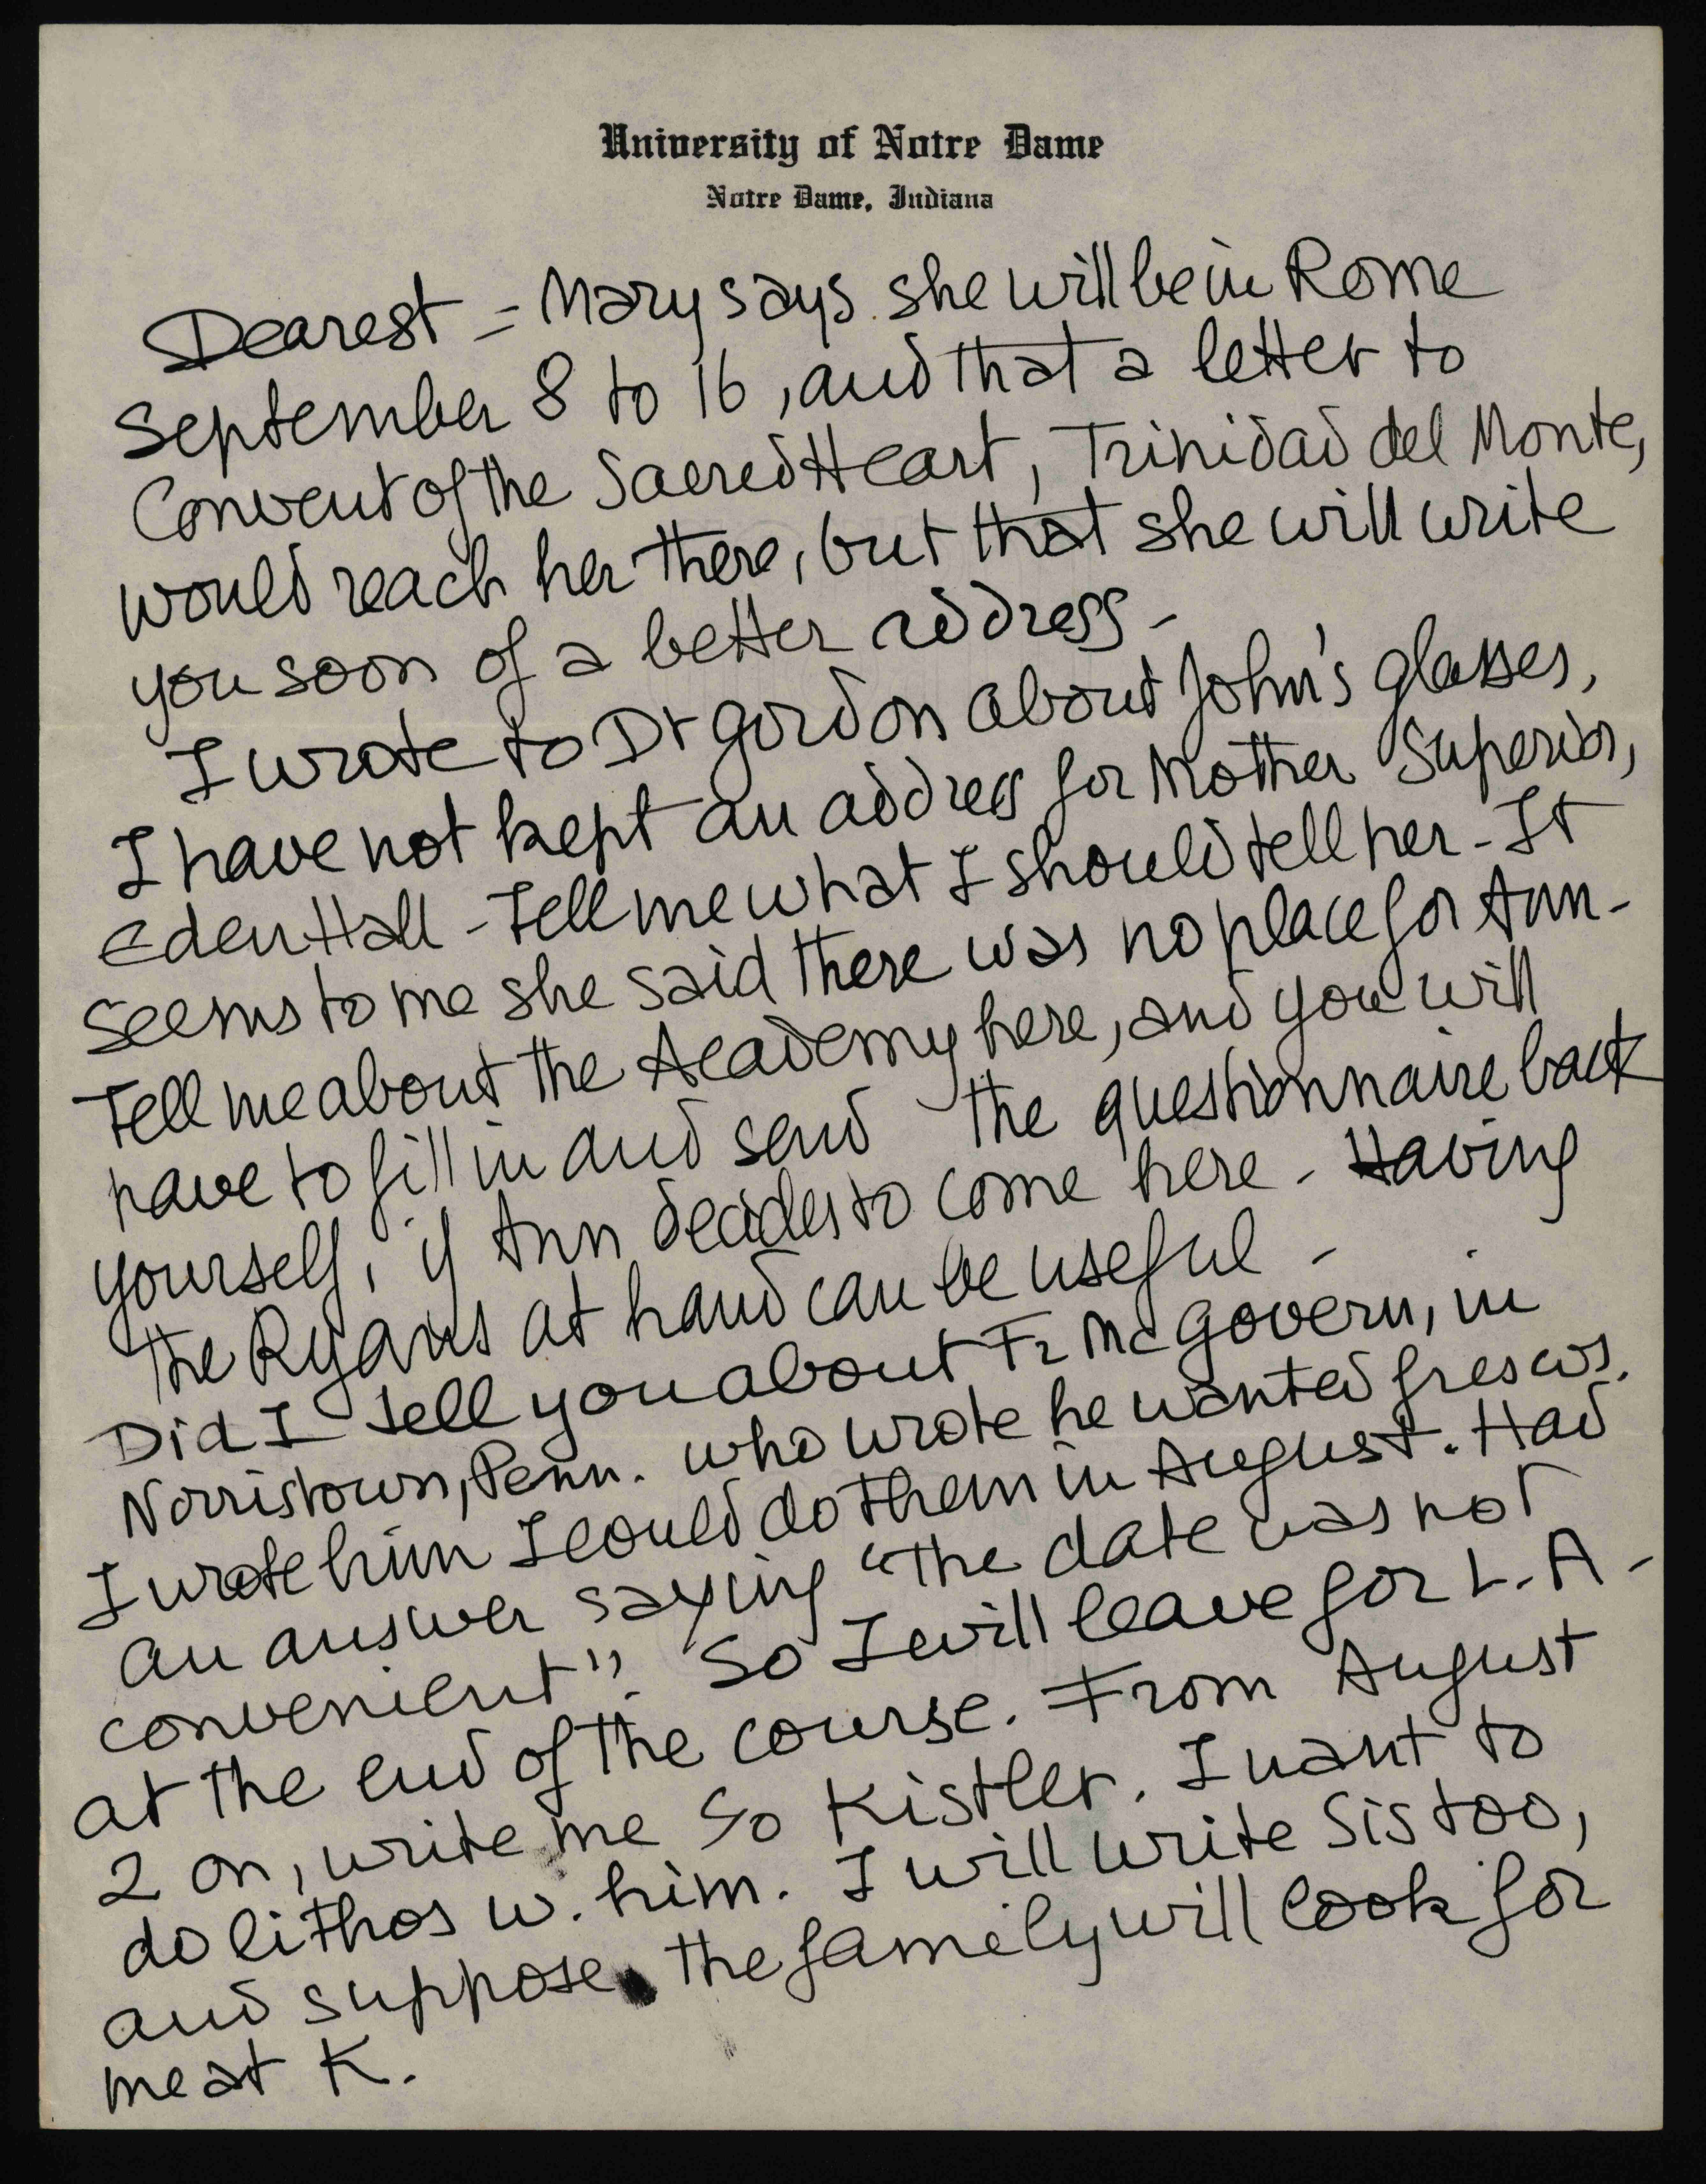 University of Notre Dame
Notre Dame, Indiana
Dearest - Mary says she will be in Rome
September 8 to 16, and that a letter to
Convent of the Sacred Heart, Trinidad del Monte,
would reach her there, but that she will write
you soon of a better address -
I wrote to Dr Gordon about John's glasses,
I have not kept an address for Mother Superior,
Eden Hall - Tell me what I should tell her - It
seems to me she said there was no place for Ann -
Tell me about the Academy here, and you will
have to fill in and send the questionnaire back
yourself, if Ann decides to come here - Having
the Ryans at hand can be useful -
Did I tell you about Fr McGovern, in
Norristown, Penn. who wrote he wanted frescos.
I wrote him I could do them in August. Had
an answer saying "the date was not
convenient". So I will leave for L.A -
at the end of the course. From August
2 on, write me c/o Kistler. I want to
do lithos w. him. I will write Sis too,
and suppose the family will look for
me at K.